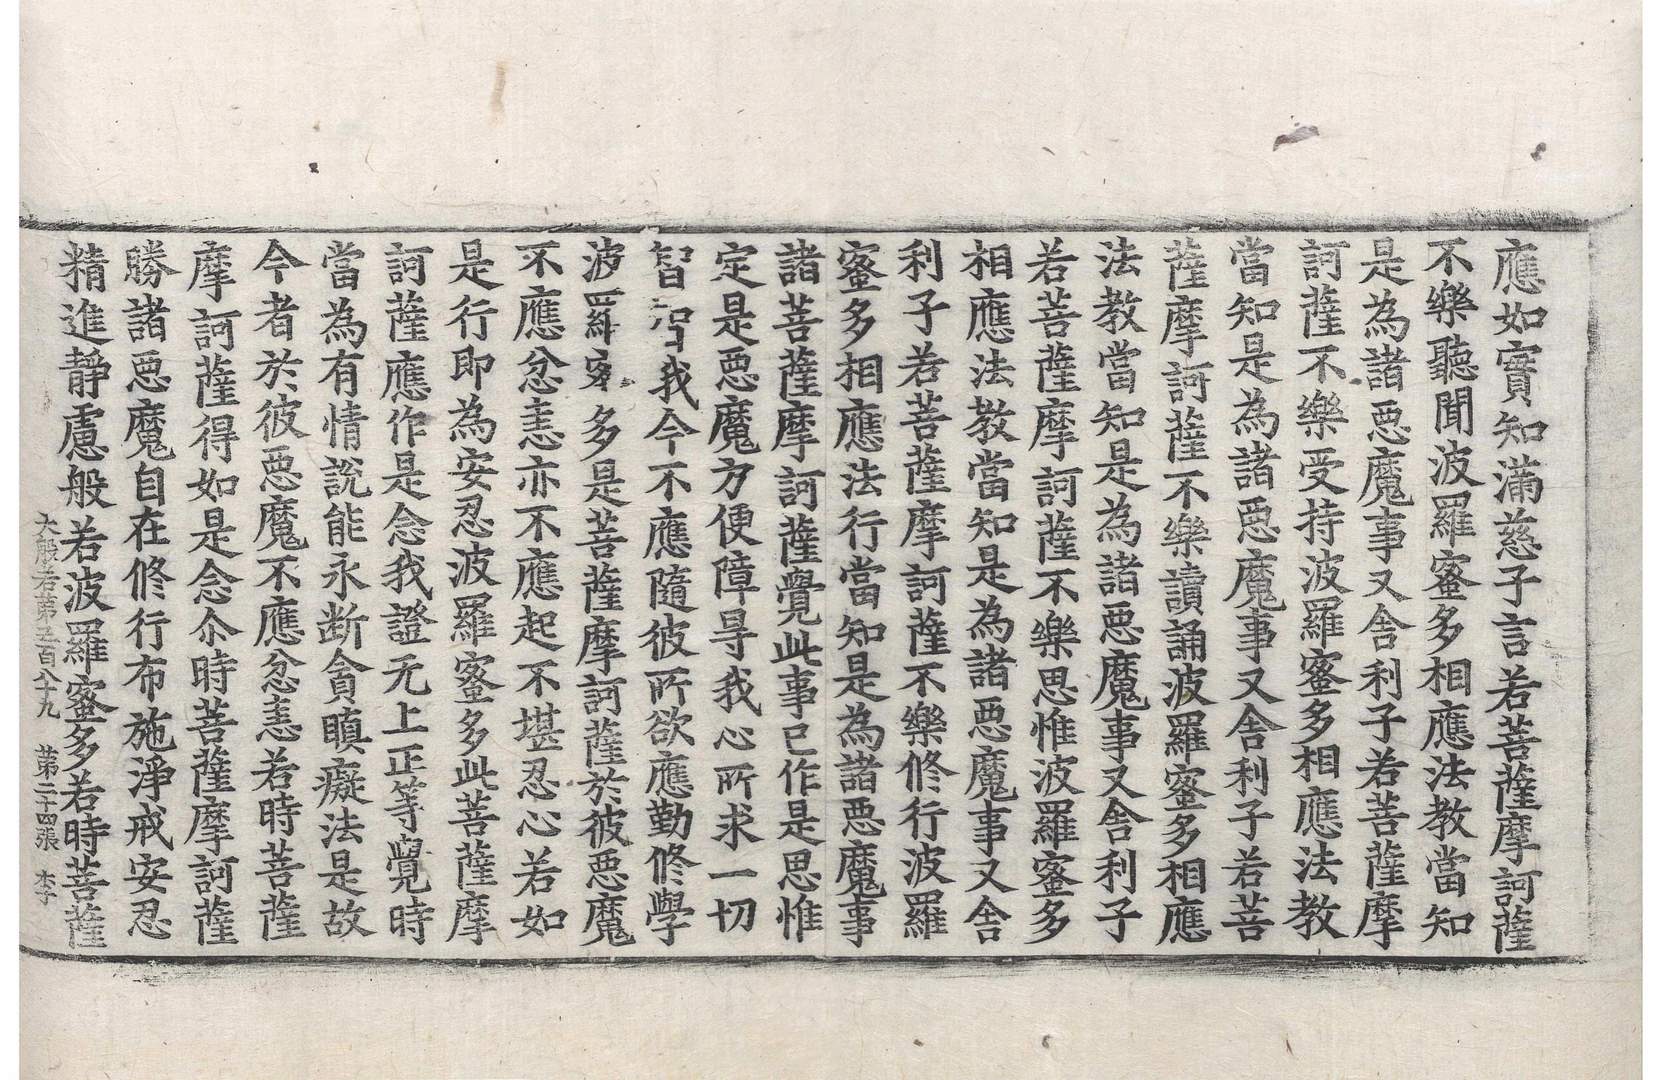 應如實知滿慈子言若菩薩摩訶薩
不樂聽聞波羅蜜多相應法教當知
是為諸惡魔事又舍利子若菩薩摩
訶薩不樂受持波羅蜜多相應法教
當知是為諸惡魔事又舍利子若菩
薩摩訶薩不樂讀誦波羅蜜多相應
法教當知是為諸惡魔事又舍利子
若菩薩摩訶薩不樂思惟波羅蜜多
相應法教當知是為諸惡魔事又舍
利子若菩薩摩訶薩不樂修行波羅
蜜多相應法行當知是為諸惡魔事
諸菩薩摩訶薩覺此事已作是思惟
定是惡魔方便障㝵我心所求一切
智智我今不應隨彼所欲應勤修學
波羅蜜多是菩薩摩訶薩於彼惡魔
不應忿恚亦不應起不堪忍心若如
是行即為安忍波羅蜜多此菩薩摩
訶薩應作是念我證无上正等覺時
當為有情說能永斷貪瞋癡法是故
今者於彼惡魔不應忿恚若時菩薩
摩訶薩得如是念尒時菩薩摩訶薩
勝諸惡魔自在修行布施淨戒安忍
精進靜慮般若波羅蜜多若時菩薩
大般若第五百八十九 第二十四張 李